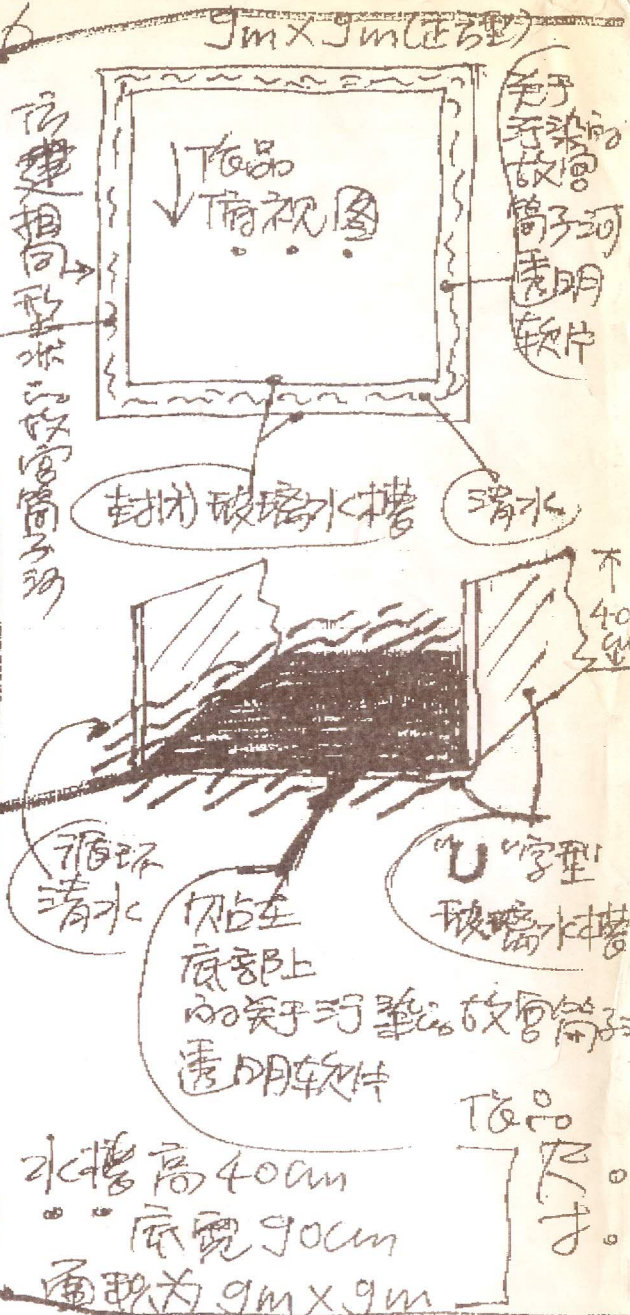 6
9m×9m(正方型)
仿建相同形状的故宫筒子河
↓作品
俯视图
关于
污染的
故宫
筒子河
透明
软片
封闭玻璃水槽
清水
不
40
循环
清水
"U"字型
玻璃水槽
贴在
底部上
的关于污染的故宫筒子
透明软片
作品
尺
寸
水槽高40cm
底宽90cm
面积为9m×9m